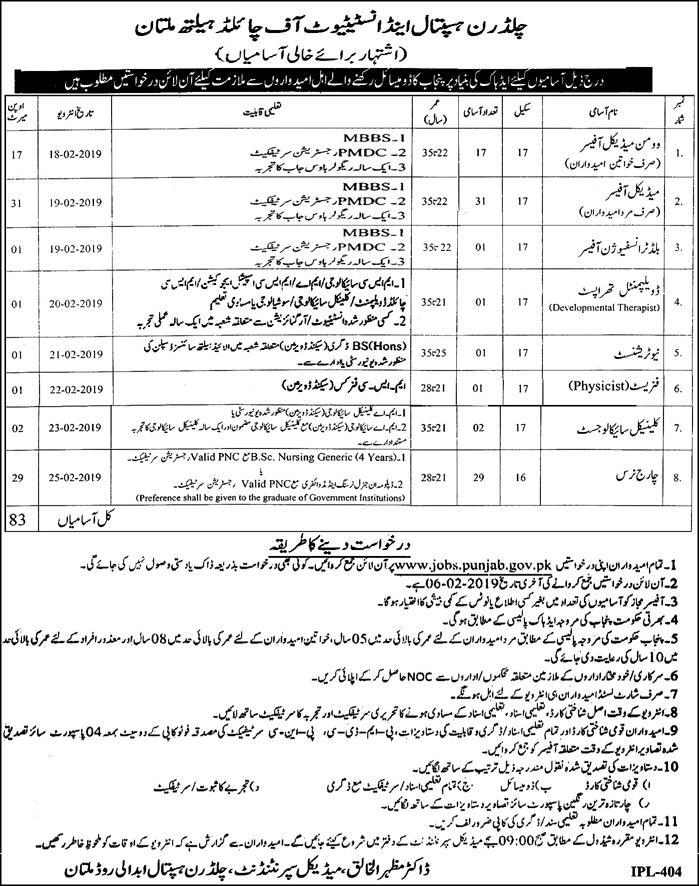 چلڈرن ہسپتال اینڈ انسٹیٹیوٹ آف چائلڈ ہیلتھ ملتان
(اشتہار برائے خالی آسامیاں)
درج ذیل آسامیوں کیلئے ایڈہاک کی بنیاد پر پنجاب کا ڈومیسائل رکھنے والے اہل امیدواروں سے ملازمت کیلئے آن لائن درخواستیں مطلوب ہیں
نمبر شمار نام آسامی سکیل تعداد آسامی عمر (سال) تعلیمی قابلیت تاریخ انٹرویو اوپن میرٹ
1. وومن میڈیکل آفیسر (صرف خواتین امیدواران) 17 17 22تا35 1۔MBBS 18-02-2019 17
2۔PMDC رجسٹریشن سرٹیفکیٹ
3۔ایک سالہ ریگولر ہاؤس جاب کا تجربہ
2. میڈیکل آفیسر (صرف مرد امیدواران) 17 31 22تا35 1۔MBBS 19-02-2019 31
2۔PMDC رجسٹریشن سرٹیفکیٹ
3۔ایک سالہ ریگولر ہاؤس جاب کا تجربہ
3. بلڈ ٹرانسفیوژن آفیسر 17 01 22تا35 1۔MBBS 19-02-2019 01
2۔PMDC رجسٹریشن سرٹیفکیٹ
3۔ایک سالہ ریگولر ہاؤس جاب کا تجربہ
4. ڈویلپمنٹل تھراپسٹ (Developmental Therapist) 17 01 21تا35 1۔ایم ایس سی سائیکالوجی/ایم اے/ایم ایس سی اسپیشل ایجوکیشن/ایم ایس سی 20-02-2019 01
چائلڈ ڈویلپمنٹ/کلینیکل سائیکالوجی/سوشیالوجی یا مساوی تعلیم
2۔کسی منظور شدہ انسٹیٹیوٹ/آرگنائزیشن سے متعلقہ شعبہ میں ایک سالہ عملی تجربہ
5. نیوٹریشنسٹ 17 01 25تا35 BS(Hons) ڈگری (سیکنڈ ڈویژن) متعلقہ شعبہ میں الائیڈ ہیلتھ سائنسز ڈسپلن کی 21-02-2019 01
منظور شدہ یونیورسٹی یا ادارے سے۔
6. فزیسٹ (Physicist) 17 01 21تا28 ایم۔ایس۔سی فزکس (سیکنڈ ڈویژن) 22-02-2019 01
7. کلینیکل سائیکالوجسٹ 17 02 21تا35 1۔ایم اے کلینیکل سائیکالوجی (سیکنڈ ڈویژن) منظور شدہ یونیورسٹی یا 23-02-2019 02
2۔ایم اے سائیکالوجی (سیکنڈ ڈویژن) مع کلینیکل سائیکالوجی مضمون اور ایک سالہ کلینیکل سائیکالوجی کا تجربہ
مستند ادارے سے۔
8. چارج نرس 16 29 21تا28 1۔B.Sc. Nursing Generic (4 Years) مع Valid PNC رجسٹریشن سرٹیفکیٹ۔ 25-02-2019 29
یا
2۔ڈپلومہ ان جنرل نرسنگ اینڈ مڈوائفری مع Valid PNC رجسٹریشن سرٹیفکیٹ۔
(Preference shall be given to the graduate of Government Institutions)
کل آسامیاں 83
درخواست دینے کا طریقہ
1۔تمام امیدواران اپنی درخواستیں www.jobs.punjab.gov.pk پر آن لائن جمع کروائیں۔ کوئی بھی درخواست بذریعہ ڈاک یا دستی وصول نہیں کی جائے گی۔
2۔آن لائن درخواستیں جمع کروانے کی آخری تاریخ 06-02-2019 ہے۔
3۔آفیسر مجاز کو آسامیوں کی تعداد میں بغیر کسی اطلاع یا نوٹس کے کمی بیشی کا اختیار ہوگا۔
4۔بھرتی حکومت پنجاب کی مروجہ ایڈہاک پالیسی کے مطابق ہوگی۔
5۔پنجاب حکومت کی مروجہ پالیسی کے مطابق مرد امیدواران کے لئے عمر کی بالائی حد میں 05 سال، خواتین امیدواران کے لئے عمر کی بالائی حد میں 08 سال اور معذور افراد کے لئے عمر کی بالائی حد
میں 10 سال کی رعایت دی جائے گی۔
6۔سرکاری/خود مختار اداروں کے ملازمین متعلقہ محکموں/اداروں سے NOC حاصل کر کے اپلائی کریں۔
7۔صرف شارٹ لسٹڈ امیدواران ہی انٹرویو کے لئے اہل ہونگے۔
8۔انٹرویو کے وقت اصل شناختی کارڈ، تعلیمی اسناد، تعلیمی اسناد کے مساوی ہونے کا تحریری سرٹیفکیٹ اور تجربہ کا سرٹیفکیٹ ساتھ لائیں۔
9۔امیدواران قومی شناختی کارڈ اور تمام تعلیمی اسناد/ڈگری و قابلیت کی دستاویزات، پی۔ایم۔ڈی۔سی، پی۔این۔سی سرٹیفکیٹ کی مصدقہ فوٹو کاپی کے دو سیٹ بمعہ 04 پاسپورٹ سائز تصدیق
شدہ تصاویر انٹرویو کے وقت متعلقہ آفیسر کو جمع کروائیں۔
10۔دستاویزات کی تصدیق شدہ نقول مندرجہ ذیل ترتیب کے ساتھ لگائیں۔
ا) قومی شناختی کارڈ ب) ڈومیسائل ج) تمام تعلیمی اسناد/سرٹیفکیٹ مع ڈگری د) تجربے کا ثبوت/سرٹیفکیٹ
ر) چار تازہ ترین رنگین پاسپورٹ سائز تصاویر دستاویزات کے ساتھ لگائیں۔
11۔تمام امیدواران مطلوبہ تعلیمی سند/ڈگری کی کاپی ضرور لف کریں۔
12۔انٹرویو مقررہ شیڈول کے مطابق صبح 09:00 بجے میڈیکل سپرنٹنڈنٹ کے دفتر میں شروع کیئے جائیں گے۔ امیدواران سے گزارش ہے کہ انٹرویو کے اوقات کو ملحوظ خاطر رکھیں۔
ڈاکٹر مظہر الخالق، میڈیکل سپرنٹنڈنٹ، چلڈرن ہسپتال ابدالی روڈ ملتان
IPL-404